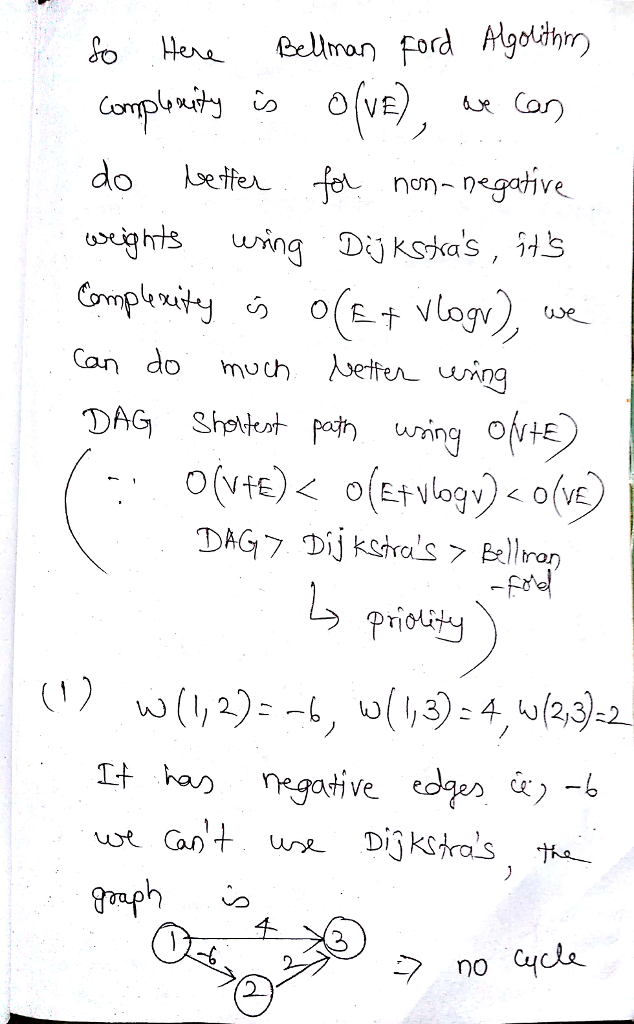 So Here Bellman Ford Algorithm
complexity is O(VE), we can
do better for non-negative
weights using Dijkstra's, it's
Complexity is O(E+Vlogv), we
can do much better using
DAG Shortest path using O(V+E)
(∵ O(V+E) < O(E+Vlogv) < O(VE)
DAG > Dijkstra's > Bellman
-Ford
↳ priority)
(1) w(1,2)=-6, w(1,3)=4, w(2,3)=2
It has negative edges ie, -6
we can't use Dijkstra's, the
graph is
1 4 3
-6 2 ⇒ no cycle
2